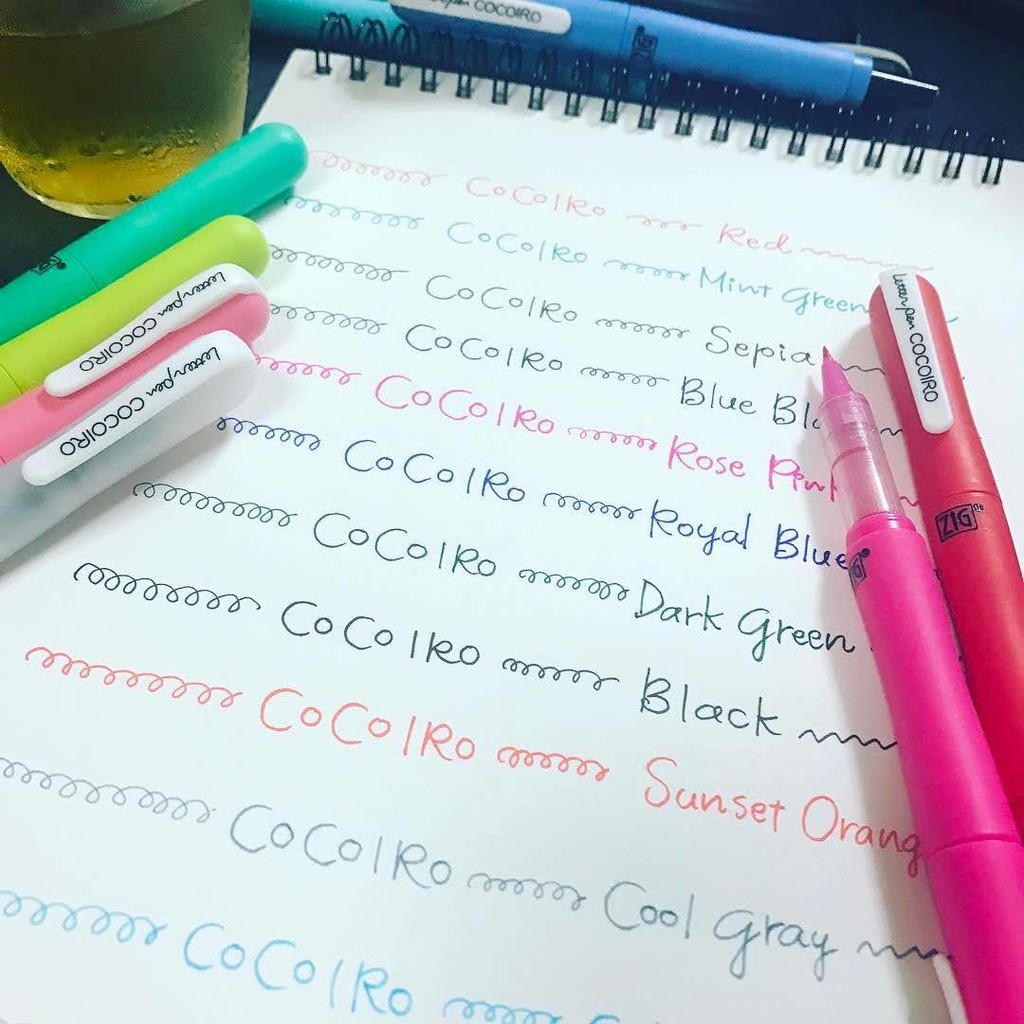 pen COCOIRO
ZIG
CoCoIRo Red
CoCoIRo Mint Green
CoCoIRo Sepia
CoCoIRo Blue Bla
CoCoIRo Rose Pink
CoCoIRo Royal Blue
CoCoIRo Dark Green
CoCoIRo Black
CoCoIRo Sunset Orang
CoCoIRo Cool Gray
CoCoIRo
Letter pen COCOIRO
Letter pen COCOIRO
Letter pen COCOIRO
ZIG